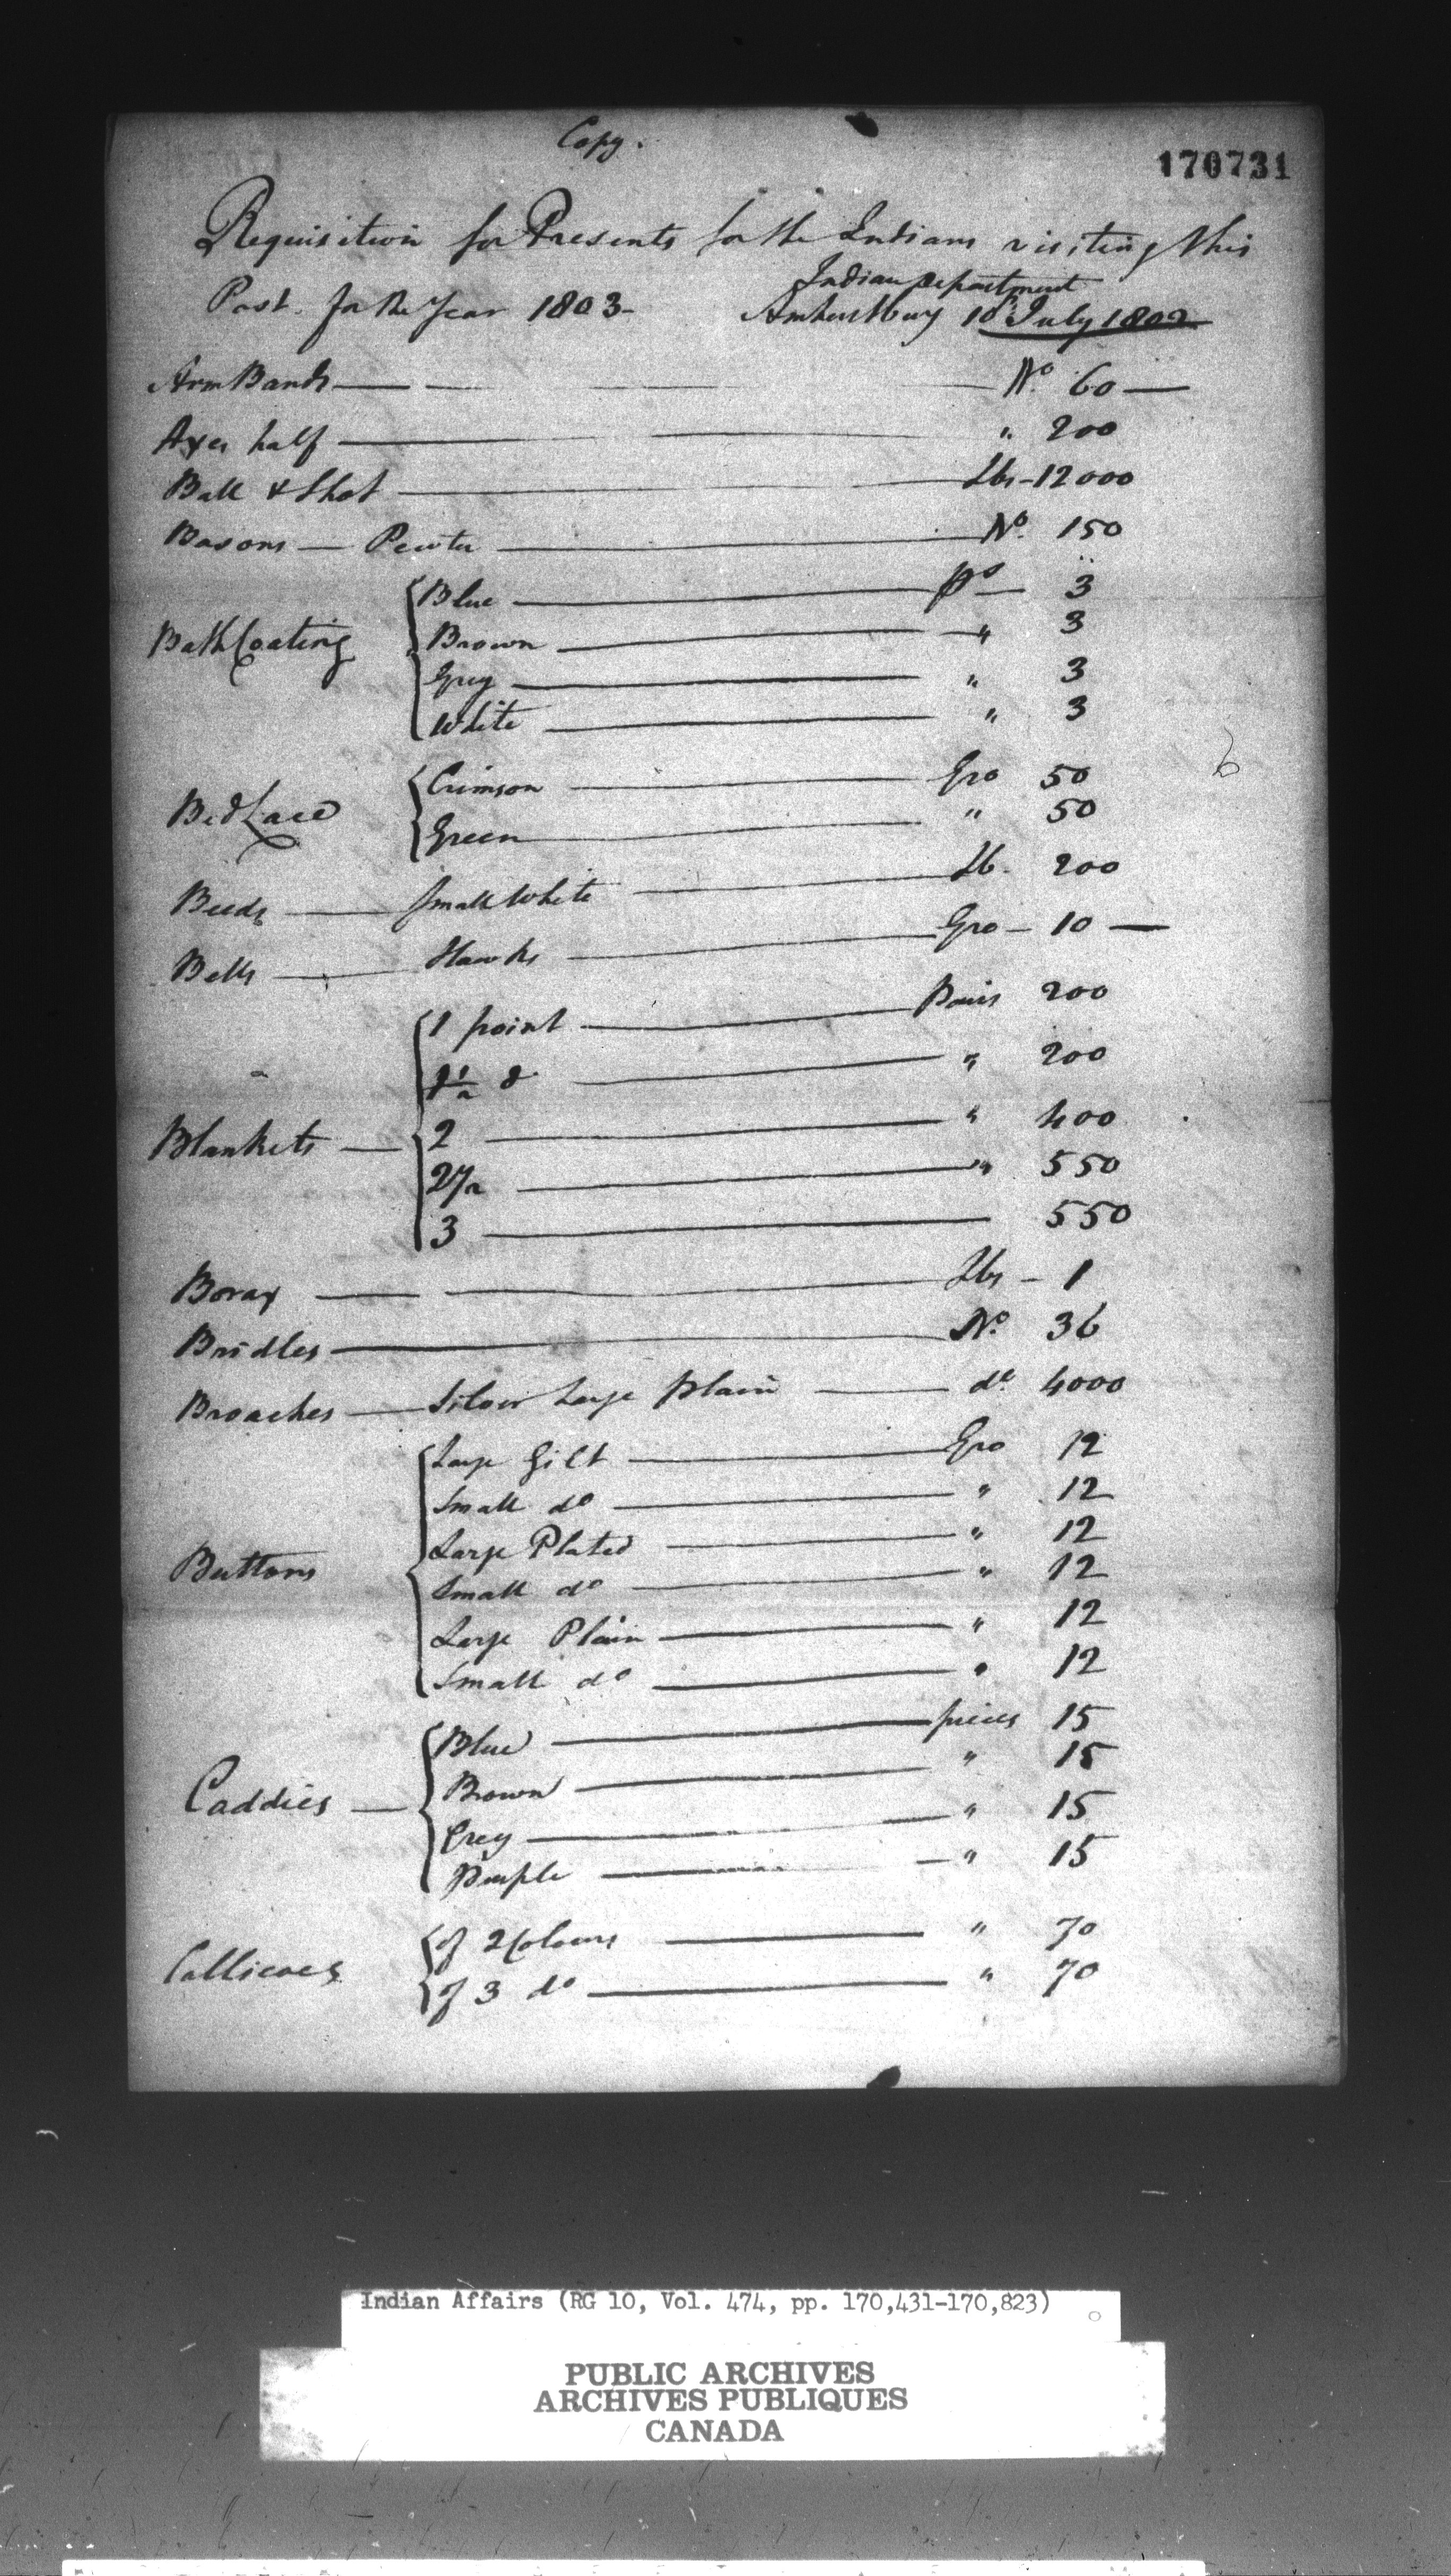 Copy.
170731
Requisition for Presents for the Indians visiting this
Post. for the Year 1803-
Indian Department
Amherstburg 10th July 1802
Arm Bands — No. 60 —
Axes half — " 200
Ball & Shot — Lbs - 12000
Basons — Pewter — No. 150
Bath Coating { Blue — ps — 3
Brown — " 3
Grey — " 3
White — " 3
Bed Lace { Crimson — Gro 50
Green — " 50
6
Beeds — Small White — Lb. 200
Bells — Hawks — Gro - 10 —
Blankets — { 1 point — Pairs 200
1 1/2 do — " 200
2 — " 400
2 1/2 — " 550
3 — 550
Borax — Lbs - 1
Bridles — No. 36
Broaches — Silver Large plain — do. 4000
Buttons { Large Gilt — Gro 12
Small do — " 12
Large Plated — " 12
Small do — " 12
Large Plain — " 12
Small do — " 12
Caddies — { Blue — pieces 15
Brown — " 15
Grey — " 15
Purple — " 15
Callicoes { of 2 Colours — " 70
of 3 do — " 70
Indian Affairs (RG 10, Vol. 474, pp. 170,431-170,823)
PUBLIC ARCHIVES
ARCHIVES PUBLIQUES
CANADA